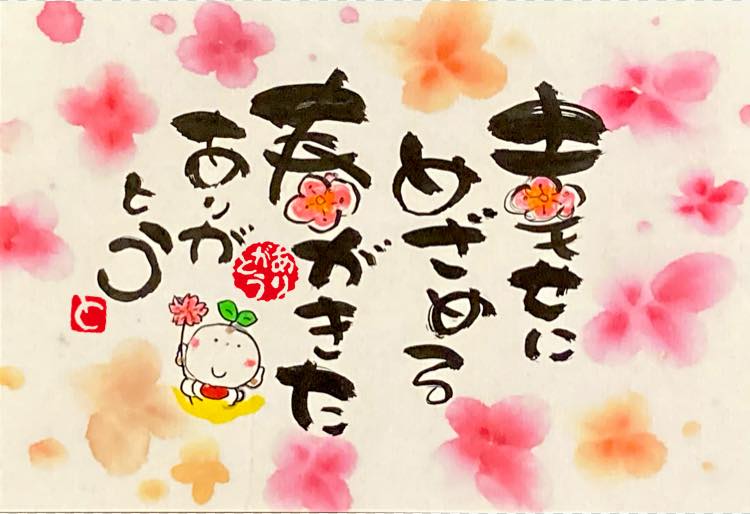 幸せに
めざめる
春がきた
ありが
とう
ありがとう
と